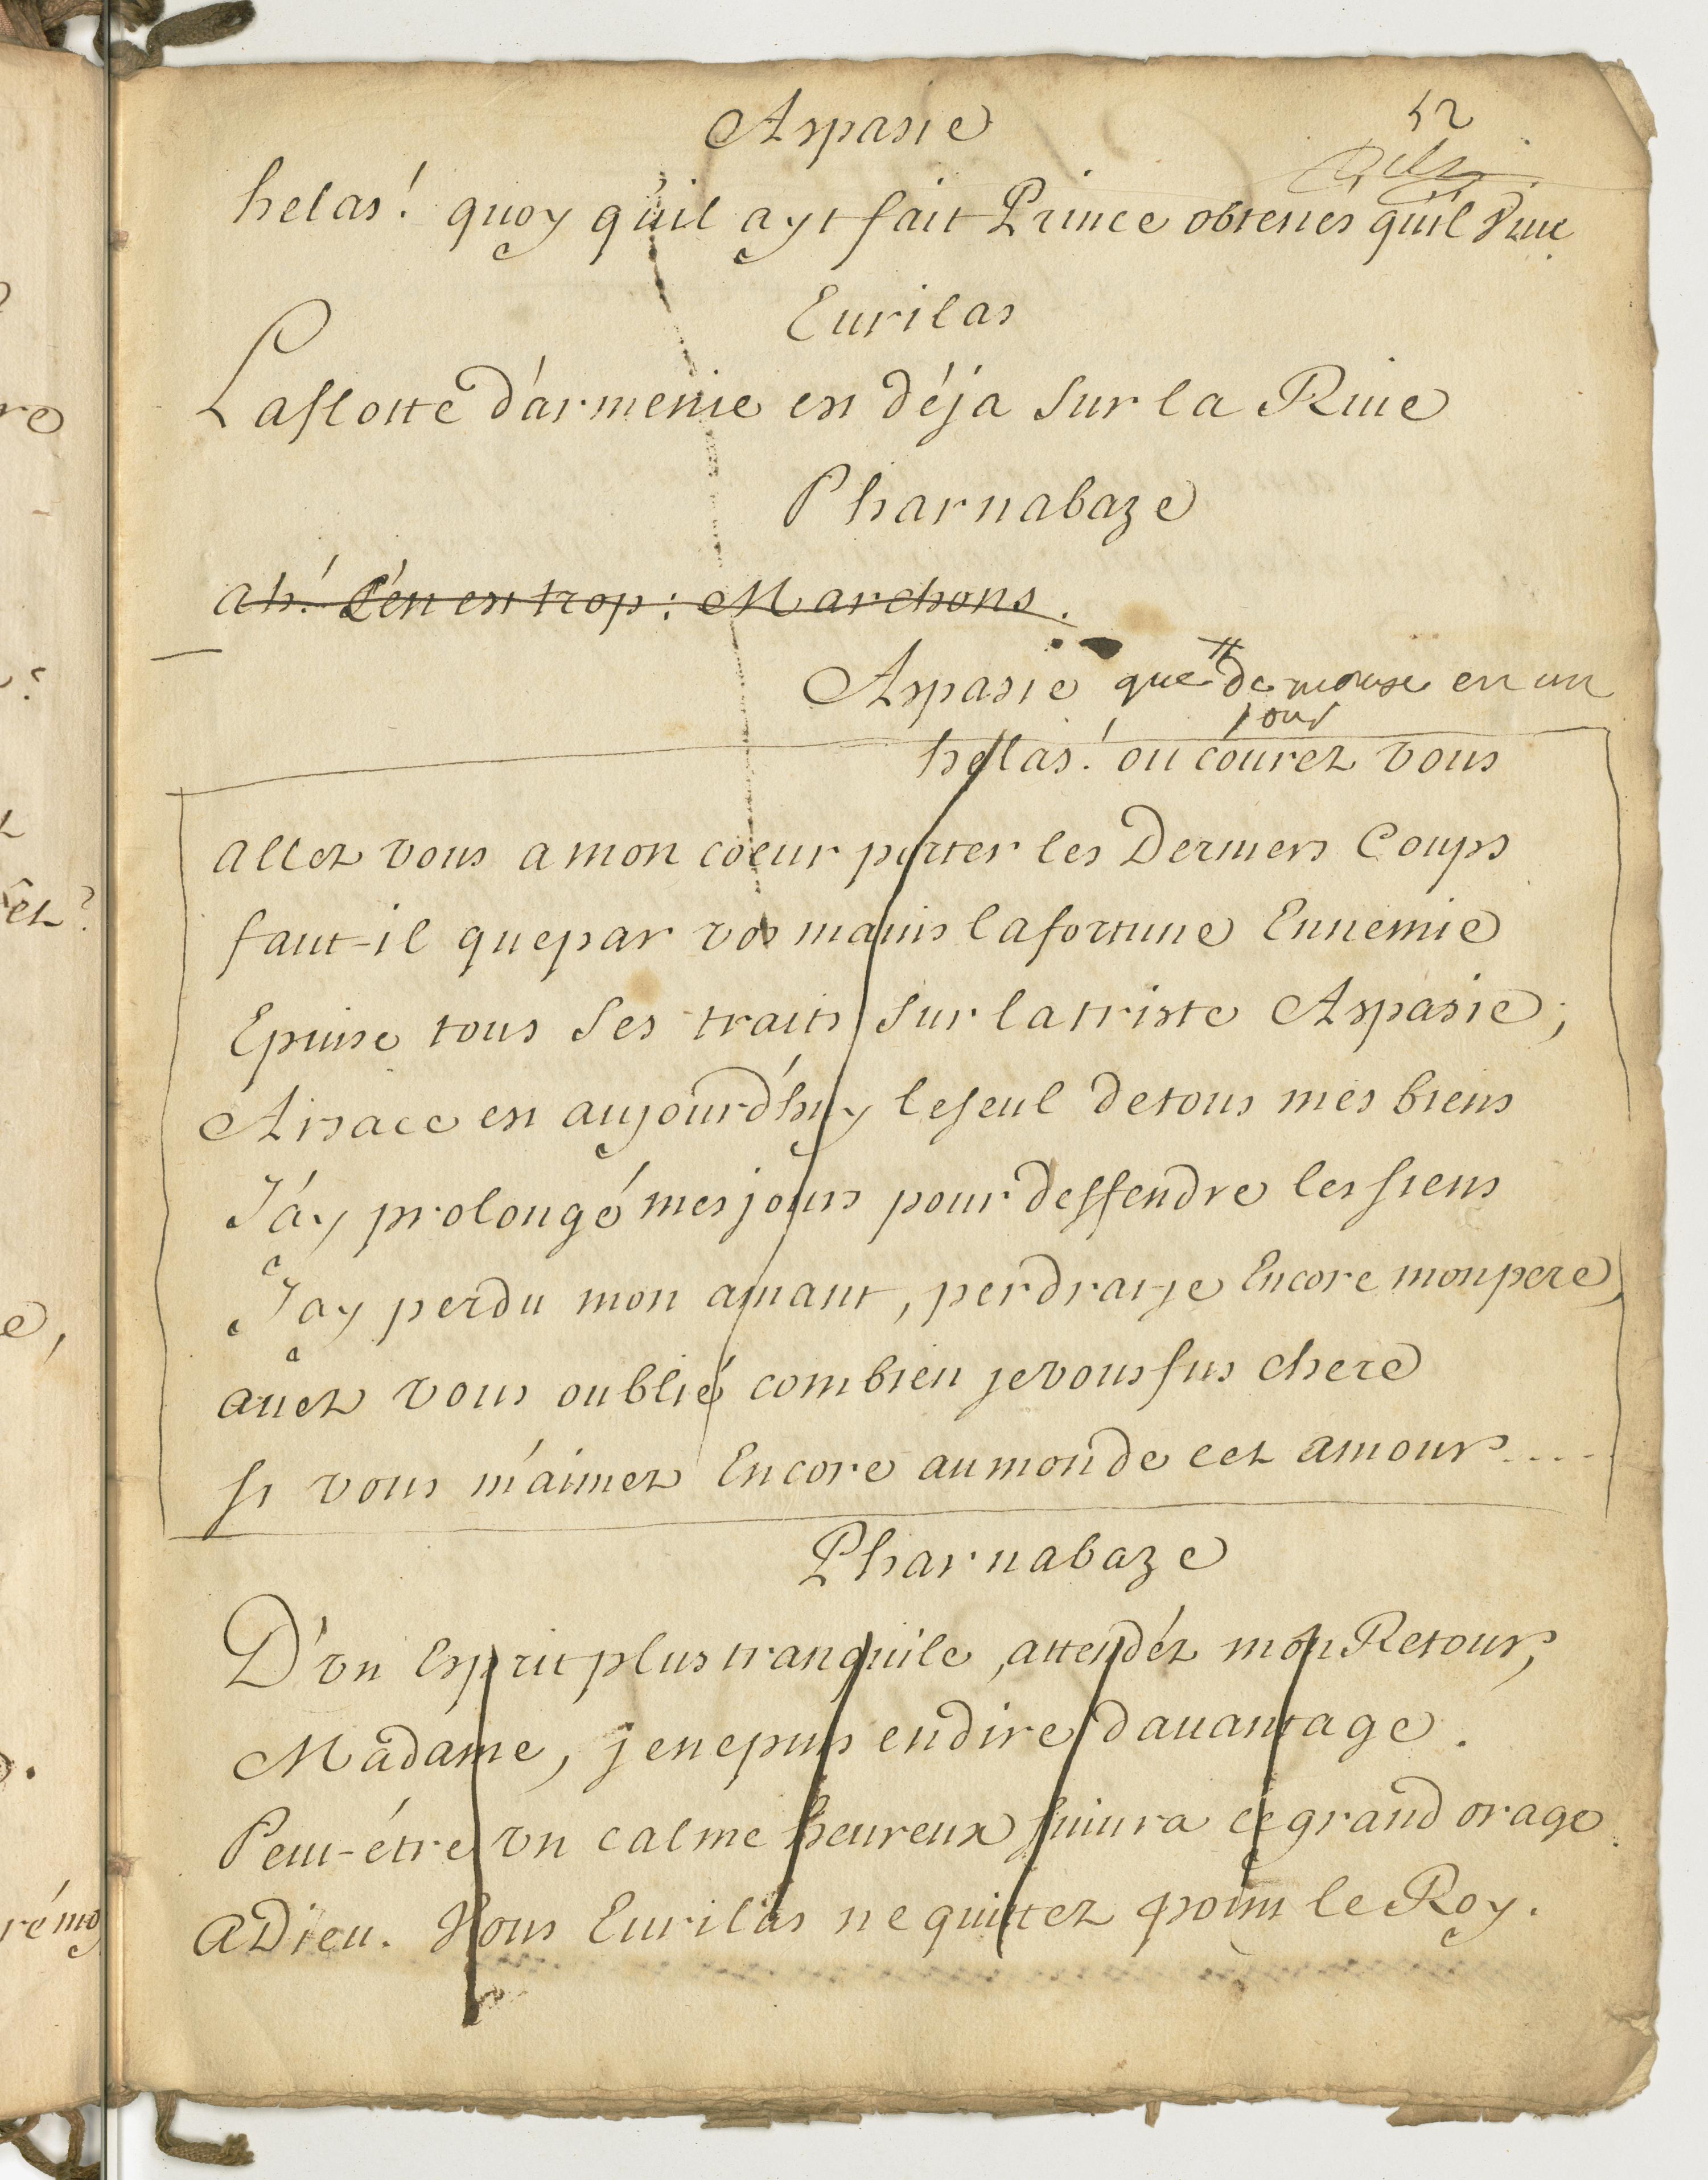 52
Aspasie
helas! quoy qu'il ayt fait Prince obtenés quil Viue
Eurilas
La flotte d'armenie est déja sur la Riue
Pharnabaze
ah! C'en est trop: Marchons.
Aspasie que de en un
jour
helas! ou courez vous
allez vous a mon coeur porter les Derniers Coups
faut-il que par vos mains la fortune Ennemie
Epuise tous Ses traits Sur la triste Aspasie;
Arsace est aujourd'huy le seul de tous mes biens
J'ay prolongé mes jours pour deffendre les siens
J'ay perdu mon amant, perdray-je Encore mon pere,
auez vous oublié combien je vous fus chere
si vous m'aimez Encore au monde cet amour....
Pharnabaze
D'vn Esprit plus tranquile, attendéz mon Retour,
Madame, je ne puis en dire dauantage.
Peut-étre vn calme heureux suiura ce grand orage
aDieu. Vous Eurilas ne quittez point le Roy.